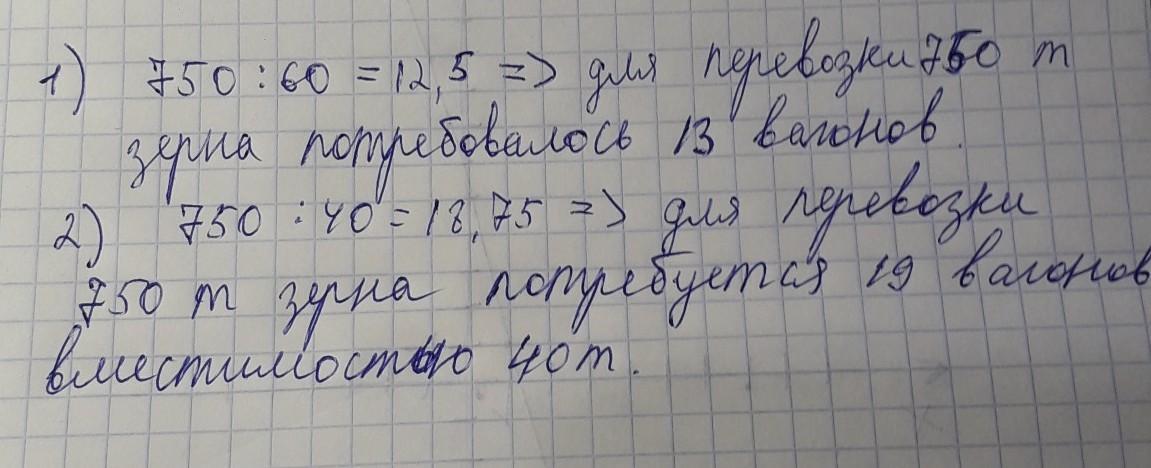 1) 750 : 60 = 12,5 => для перевозки 750 т
зерна потребовалось 13 вагонов.
2) 750 : 40 = 18,75 => для перевозки
750 т зерна потребуется 19 вагонов
вместимостью 40 т.